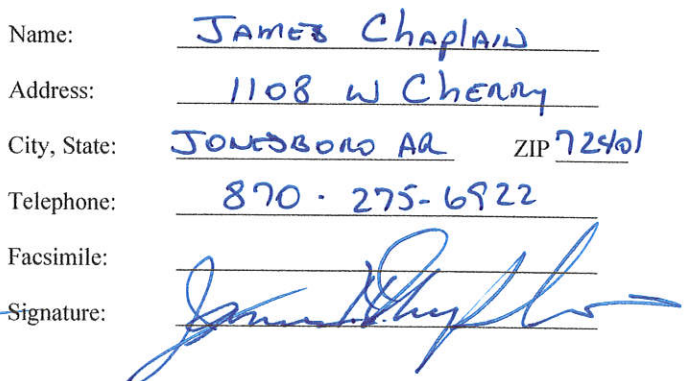 Name: JAMES ChAplAIN
Address: 1108 W ChERRY
City, State: JONESBORO AR ZIP 72401
Telephone: 870 · 275-6922
Facsimile:
Signature: